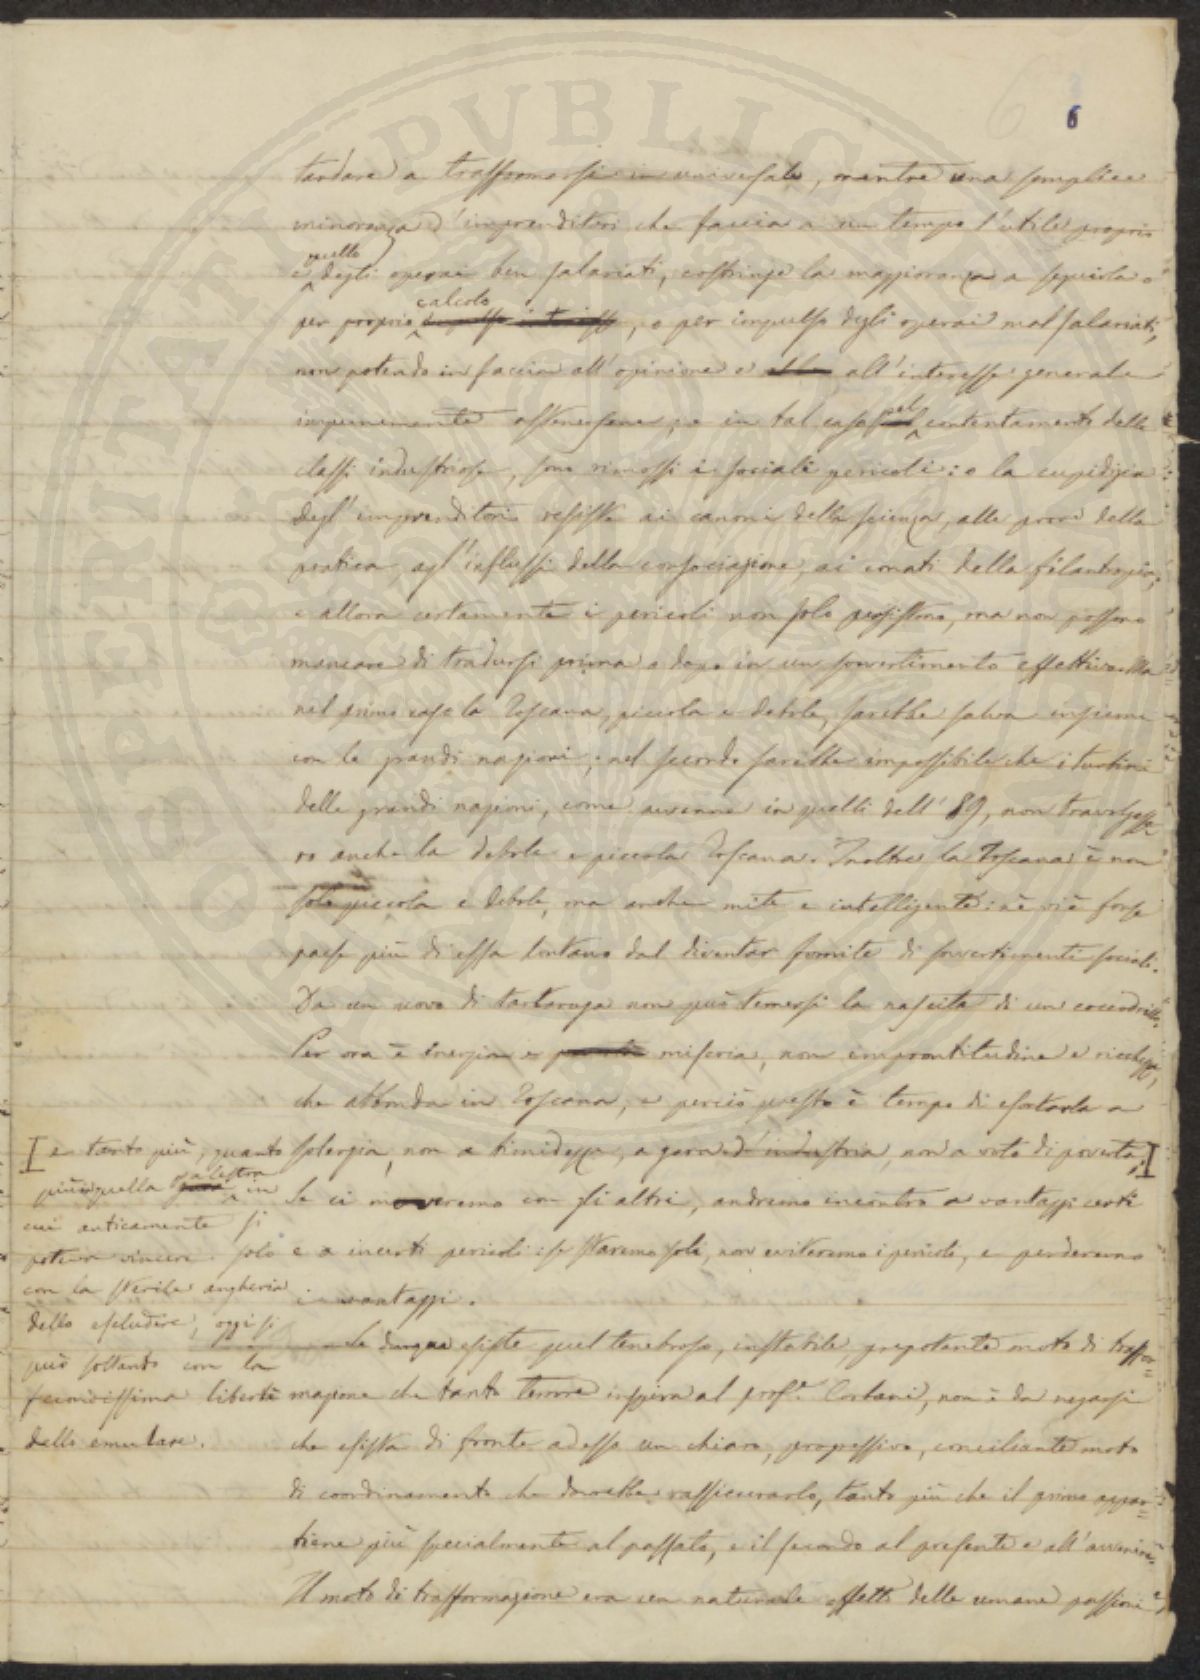 6
tardare a trasformarsi in universale, mentre una semplice
minoranza d'imprenditori che faccia a un tempo l'utile proprio
quello
e degli operai ben salariati, costringe la maggioranza a seguirla o
calcolo
per proprio, o per impulso degli operai mal salariati,
non potendo in faccia all'opinione e all'interesse generale
impunemente astenersene; e in tal caso pel contentamento delle
classi industriose, sono rimossi i sociali pericoli: o la cupidigia
degl'imprenditori resiste ai canoni della scienza, alle prove della
pratica, agl'influssi della consociazione, ai conati della filantropia;
e allora certamente i pericoli non solo persistono, ma non possono
mancare di tradursi prima o dopo in un sovvertimento effettivo. Ma
nel primo caso la Toscana, piccola e debole, sarebbe salva insieme
con le grandi nazioni; nel secondo sarebbe impossibile che i turbini
delle grandi nazioni, come avvenne in quelli dell'89, non travolgesse
ro anche la debole e piccola Toscana. Inoltre la Toscana è non
solo piccola e debole, ma anche mite e intelligente: nè vi è forse
paese più di essa lontano dal diventar fomite di sovvertimenti sociali.
Da un uovo di tartaruga non può temersi la nascita di un coccodrillo.
Per ora è inerzia e miseria, non improntitudine e ricchezza,
che abbonda in Toscana, e perciò questo è tempo di esortarla a
solerzia, non a timidezza, a gara d'industria, non a voto di povertà;
Se ci moveremo con gli altri, andremo incontro a vantaggi certi
e a incerti pericoli: se staremo soli, non eviteremo i pericoli, e perderemo
i vantaggi.
Se dunque esiste quel tenebroso, instabile, prepotente moto di trasfor=
mazione che tanto terrore inspira al prof.e Corbani, non è da negarsi
che esista di fronte ad esso un chiaro, progressivo, conciliante moto
di coordinamento che dovrebbe rassicurarlo, tanto più che il primo appar=
tiene più specialmente al passato, e il secondo al presente e all'avvenire.
Il moto di trasformazione era un naturale effetto delle umane passioni,
e tanto più, quanto
palestra
più quella in
cui anticamente si
poteva vincere solo
con la sterile angheria
dello escludere, oggi si
può soltanto con la
fecondissima libertà
dello emulare.